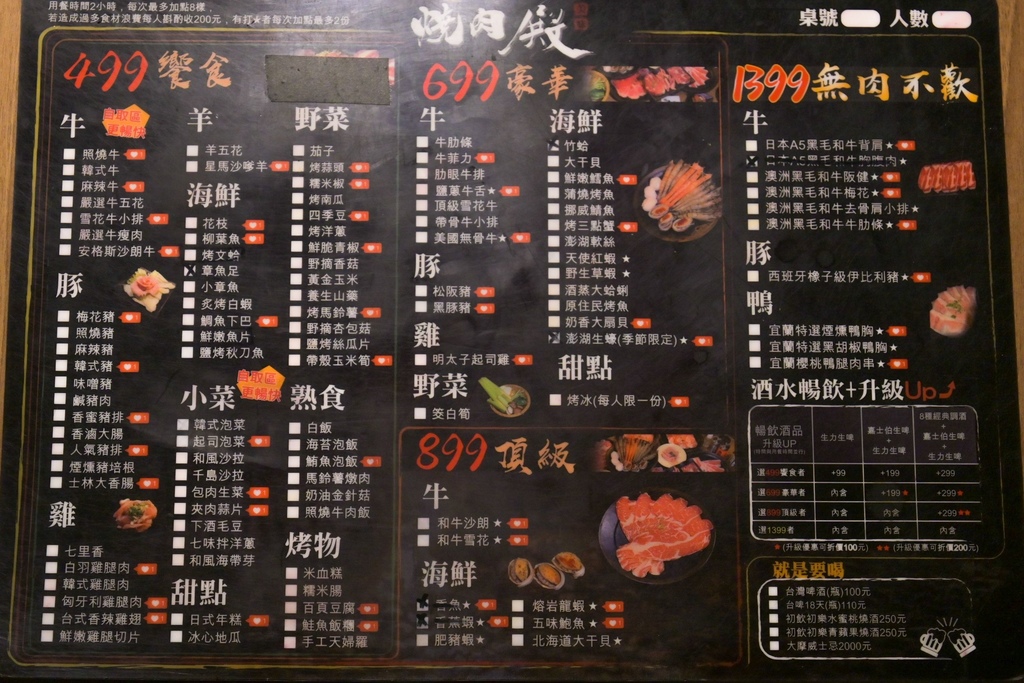 用餐時間2小時，每次最多加點8樣，
若造成過多食材浪費每人斟酌收200元，有打★者每次加點最多2份
燒肉殿
桌號 人數
499饗食
牛
自取區
更暢快
照燒牛
韓式牛
麻辣牛
嚴選牛五花
雪花牛小排
嚴選牛瘦肉
安格斯沙朗牛
豚
梅花豬
照燒豬
麻辣豬
韓式豬
味噌豬
鹹豬肉
香蜜豬排
香滷大腸
人氣豬排
煙燻豬培根
士林大香腸
雞
七里香
白羽雞腿肉
韓式雞腿肉
匈牙利雞腿肉
台式香辣雞翅
鮮嫩雞腿切片
羊
羊五花
星馬沙嗲羊
海鮮
花枝
柳葉魚
烤文蛤
章魚足
小章魚
炙烤白蝦
鯛魚下巴
鮮嫩魚片
鹽烤秋刀魚
自取區
更暢快
小菜
韓式泡菜
起司泡菜
和風沙拉
千島沙拉
包肉生菜
夾肉蒜片
下酒毛豆
七味拌洋蔥
和風海帶芽
甜點
日式年糕
冰心地瓜
野菜
茄子
烤蒜頭
糯米椒
烤南瓜
四季豆
烤洋蔥
鮮脆青椒
野摘香菇
黃金玉米
養生山藥
烤馬鈴薯
野摘杏包菇
鹽烤絲瓜片
帶殼玉米筍
熟食
白飯
海苔泡飯
鮪魚泡飯
馬鈴薯燉肉
奶油金針菇
照燒牛肉飯
烤物
米血糕
糯米腸
百頁豆腐
鮭魚飯糰
手工天婦羅
699豪華
牛
牛肋條
牛菲力
肋眼牛排
鹽蔥牛舌★
頂級雪花牛
帶骨牛小排
美國無骨牛★
豚
松阪豬
黑豚豬
雞
明太子起司雞
野菜
筊白筍
海鮮
竹蛤
大干貝
鮮嫩鱈魚
蒲燒烤魚
挪威鯖魚
烤三點蟹
澎湖軟絲
天使紅蝦★
野生草蝦★
酒蒸大蛤蜊
原住民烤魚
奶香大扇貝
澎湖生蠔(季節限定)★
甜點
烤冰(每人限一份)
899頂級
牛
和牛沙朗★
和牛雪花★
海鮮
香魚★
香蕉蝦★
肥豬蝦★
熔岩龍蝦★
五味鮑魚★
北海道大干貝★
1399無肉不歡
牛
日本A5黑毛和牛背肩★
日本A5黑毛和牛胸腹肉★
澳洲黑毛和牛阪健★
澳洲黑毛和牛梅花★
澳洲黑毛和牛去骨肩小排★
澳洲黑毛和牛牛肋條★
豚
西班牙橡子級伊比利豬★
鴨
宜蘭特選煙燻鴨胸★
宜蘭特選黑胡椒鴨胸★
宜蘭櫻桃鴨腿肉串★
酒水暢飲+升級Up
暢飲酒品
升級UP
生力生啤
嘉士伯生啤
+
生力生啤
8種經典調酒
+
嘉士伯生啤
+
生力生啤
選499饗食者 +99 +199 +299
選699豪華者 內含 +199★ +299★
選899頂級者 內含 內含 +299★★
選1399者 內含 內含 內含
★(升級優惠可折價100元) ★★(升級優惠可折價200元)
就是要喝
台灣啤酒(瓶)100元
台啤18天(瓶)110元
初飲初樂水蜜桃燒酒250元
初飲初樂青蘋果燒酒250元
大摩威士忌2000元